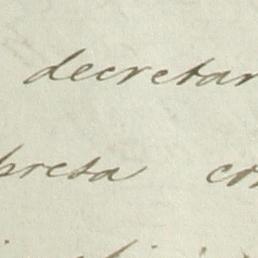 decretar
presa co